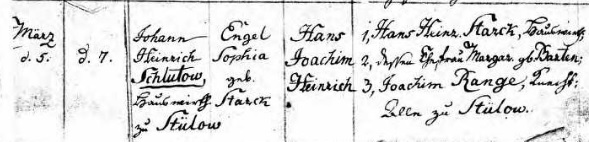 März Johann Engel Hans 1, Hans Heinr. Starck, Hauswirth
d. 5. d. 7. Heinrich Sophia Joachim 2, dessen Ehefrau Margar. gb. Barten;
Schlutow, geb. Heinrich 3, Joachim Range, Knecht;
Hauswirth Starck Allen zu Stülow.
zu Stülow